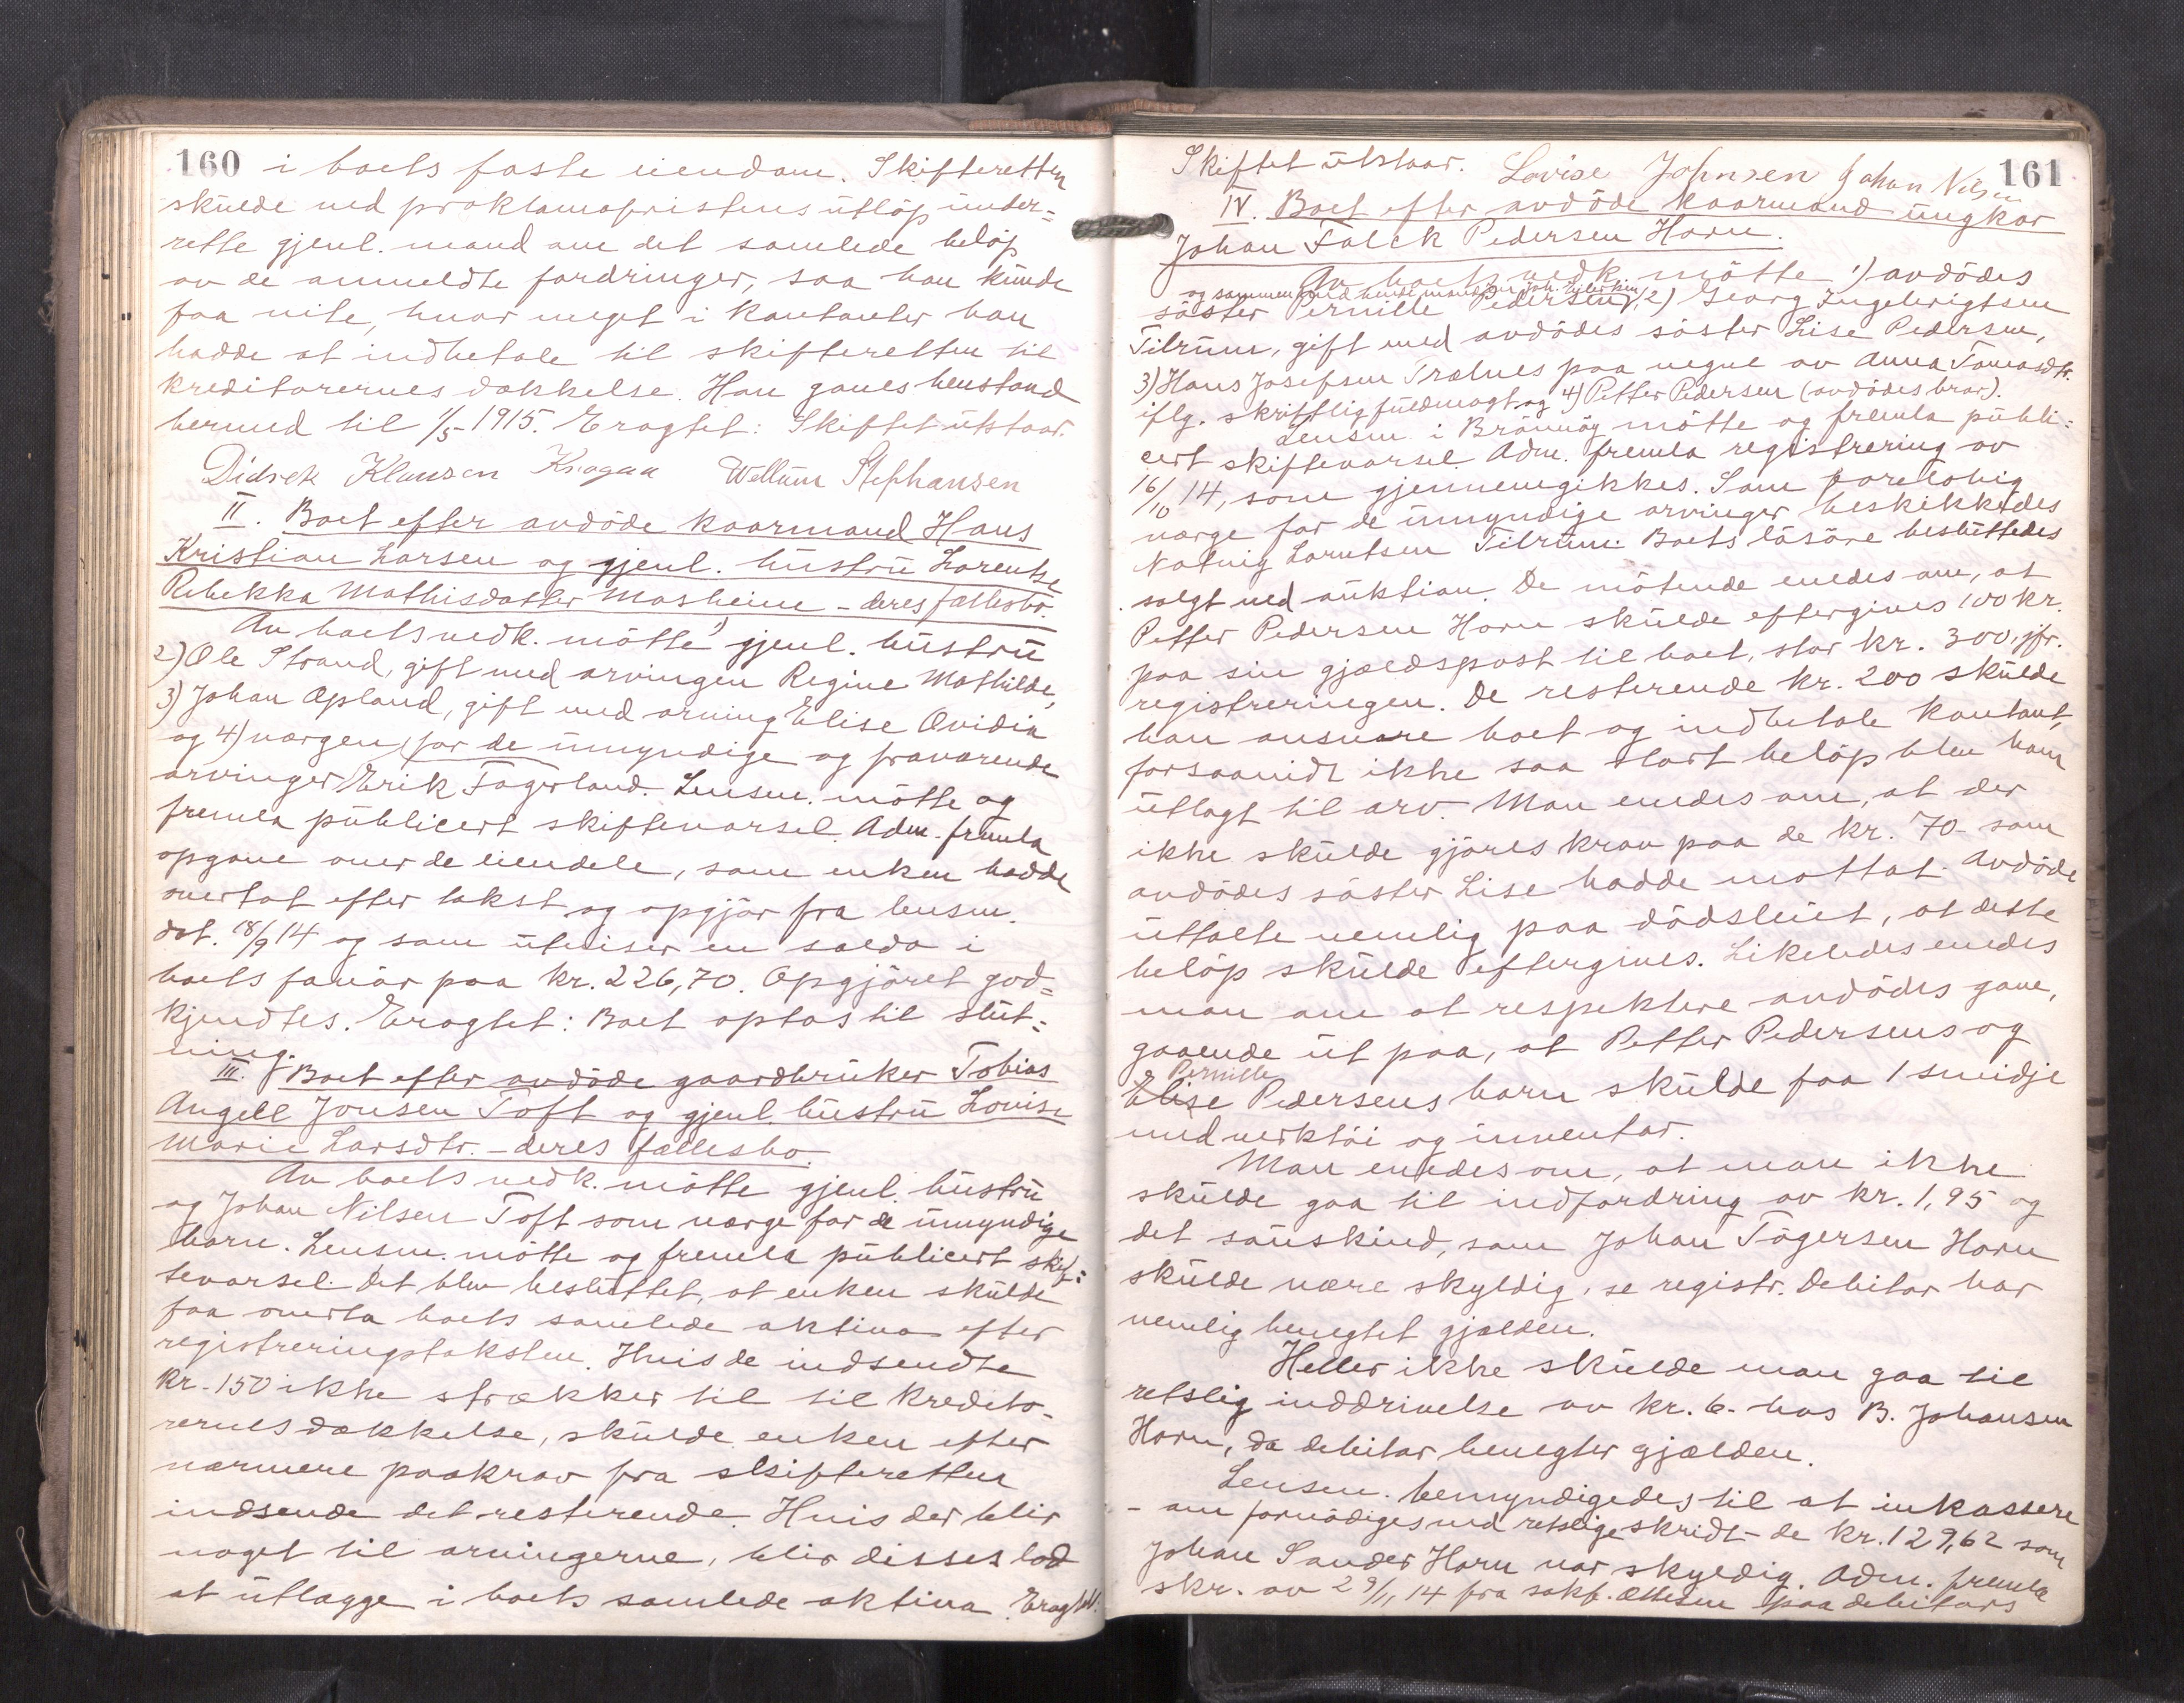 160 i boets faste eiendom. Skifteretten
skulde ved proklamafristens utløp under=
rette gjenl. mand om det samlede beløp
av de anmeldte fordringer, saa han kunde
faa vite, hvor meget i kontanter han
hadde at indbetale til skifteretten til
kreditorernes dækkelse. Han gaves henstand
hermed til 1/5 1915. Eragtet: Skiftet utstaar.
Didrek Klausen Kvagaa Wellum Stephansen
II. Boet efter avdøde kaarmand Hans
Kristian Larsen og gjenl. hustru Lorentse
Rebekka Mathisdatter Mosheim - deres fællesbo.
Av boets vedk. møtte 1) gjenl. hustru
2) Ole Strand, gift med arvingen Regine Mathilde,
3) Johan Opland, gift med arving Elise Ovidia
og 4) værgen for de umyndige og fraværende
arvinger Erik Fagerland. Lensm. møtte og
fremla publicert skiftevarsel. Adm. fremla
opgave over de eiendele, som enken hadde
overtat efter takst og opgjør fra lensm.
dat. 18/9 14 og som utviser en saldo i
boets favør paa kr. 226,70. Opgjøret god=
kjendtes. Eragtet: Boet optas til slut=
ning.
III. Boet efter avdøde gaardbruker Tobias
Angell Jonsen Toft og gjenl. hustru Lovise
Marie Larsdtr. - deres fællesbo.
Av boets vedk. møtte gjenl. hustru
og Johan Nilsen Toft som værge for de umyndige
barn. Lensm. møtte og fremla publicert skif=
tevarsel. Det blev besluttet, at enken skulde
faa overta boets samlede aktiva efter
registreringstaksten. Hvis de indsendte
kr. 150 ikke strækker til til kredito-
rernes dækkelse, skulde enken efter
nærmere paakrav fra skifteretten
indsende det resterende. Hvis der blir
noget til arvingerne, blir disses lod
at utlægge i boets samlede aktiva. Eragtet:
161
Skiftet utstaar. Lovise Johnsen Johan Nilsen
IV. Boet efter avdøde kaarmand ungkar
Johan Falck Pedersen Horn.
Av boets vedk. møtte 1) avdødes
og sammen med hende mand
søster Pernille Pedersen, 2) Georg Ingebrigtsen
Tilrum, gift med avdødes søster Lise Pedersen,
3) Hans Josefsen Trælnes paa vegne av Anna Tomasdtr.
iflg. skriftlig fuldmagt og 4) Petter Pedersen (avdødes bror).
Lensm. i Brønnøy møtte og fremla publi=
cert skiftevarsel. Adm. fremla registrering av
16/10 14, som gjennemgikkes. Som foreløbig
værge for de umyndige arvinger beskikkedes
Nolvig Lorntsen Tilrum. Boets løsøre besluttedes
solgt ved auktion. De møtende enedes om, at
Petter Pedersen Horn skulde eftergives 100 kr.
paa sin gjældspost til boet, stor kr. 300, jfr.
registreringen. De resterende kr. 200 skulde
han ansvare boet og indbetale kontant,
forsaavidt ikke saa stort beløp blev ham
utlagt til arv. Man enedes om, at der
ikke skulde gjøres krav paa de kr. 70 - som
avdødes søster Lise hadde mottat. Avdøde
uttalte nemlig paa dødsleiet, at dette
beløp skulde eftergives. Likeledes enedes
man om at respektere avdødes gave,
gaaende ut paa, at Petter Pedersens og
Pernille
Elise Pedersens barn skulde faa 1 smidje
med verktøi og inventar.
Man enedes om, at man ikke
skulde gaa til indfordring av kr. 1,95 og
det saueskind, som Johan Tøgersen Horn
skulde være skyldig, se registr. Debitor har
nemlig benegtet gjælden.
Heller ikke skulde man gaa til
retslig inddrivelse av kr. 6 - hos B. Johansen
Horn, da debitor benegter gjælden.
Lensm. bemyndigedes til at inkassere
- om fornødiges ved retslige skridt - de kr. 129,62 som
Johan Sander Horn var skyldig. Adm. fremla
skr. av 29/11 14 fra sakf. Ottesen paa debitors